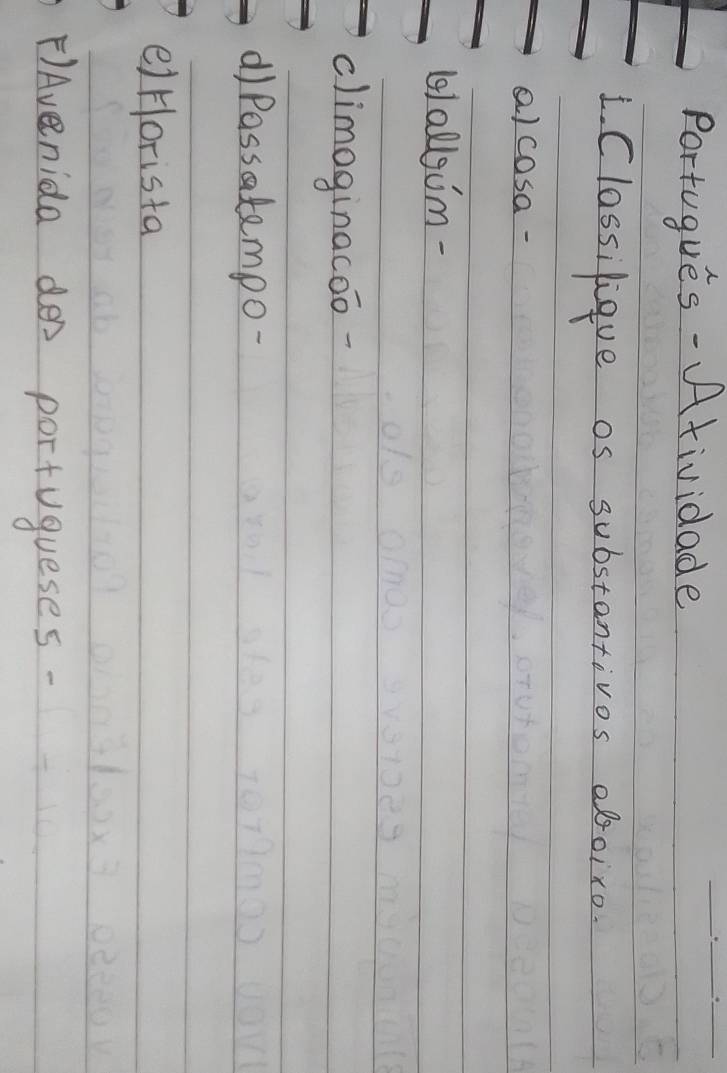 Português - Atividade
1. Classifique os substantivos abaixo.
a) casa -
b) albúm -
c) imaginacão -
d) Passatempo -
e) Florista
F) Avenida dos portugueses -